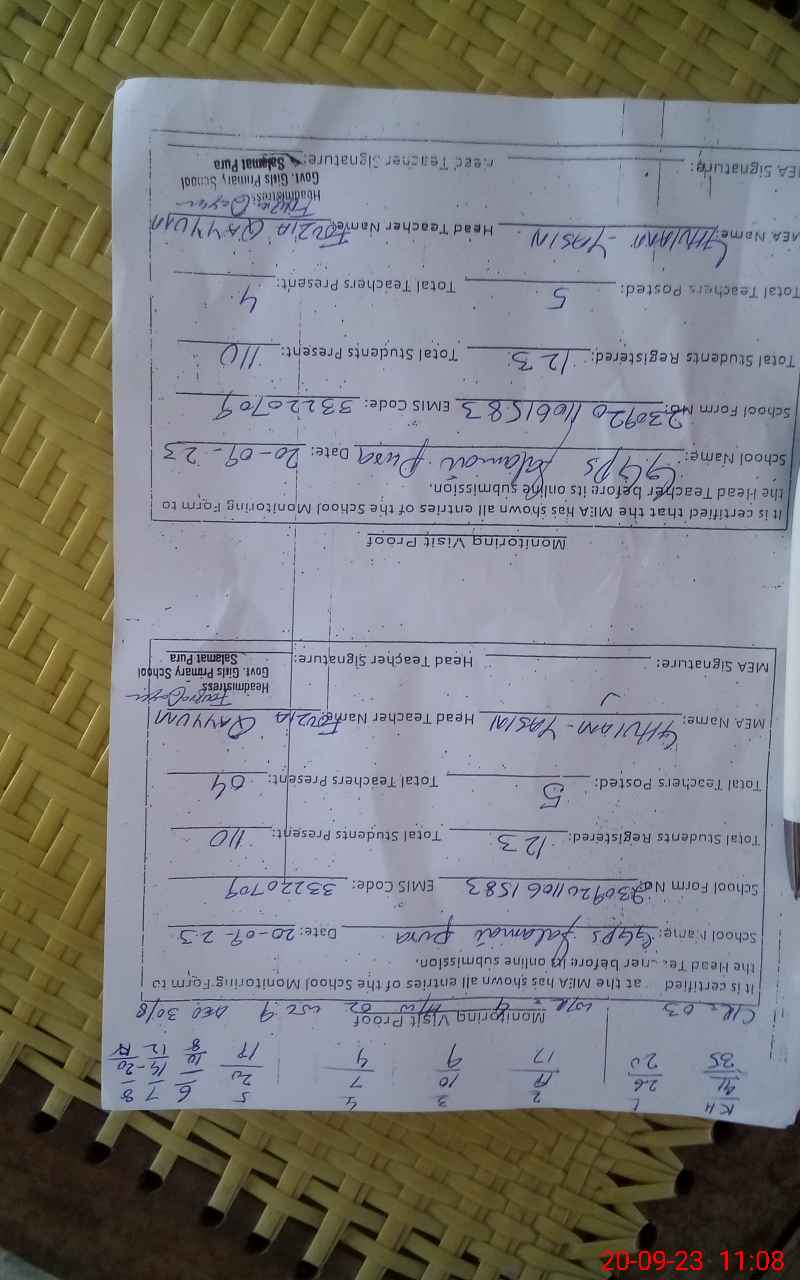 KH 1 2 3 4 5 6 7 8
41 26 19 10 7 20 16 14 20
35 20 17 9 4 17 8 12
CR = 03
Monitoring Visit Proof
DEO 30/8
It is certified at the MEA has shown all entries of the School Monitoring Form to
the Head Teacher before its online submission.
School Name: GGPS Salamat Pura Date: 20-09-23
School Form No: 23092011061583 EMIS Code: 33220709
Total Students Registered: 123 Total Students Present: 110
Total Teachers Posted: 5 Total Teachers Present: 04
MEA Name: GHULAM-YASIN Head Teacher Name: FOUZIA QAYYUM
Headmistress
MEA Signature: Head Teacher Signature: Govt. Girls Primary School
Salamat Pura
Monitoring Visit Proof
It is certified that the MEA has shown all entries of the School Monitoring Form to
the Head Teacher before its online submission.
School Name: GGPS Salamat Pura Date: 20-09-23
School Form No: 23092011061583 EMIS Code: 33220709
Total Students Registered: 123 Total Students Present: 110
Total Teachers Posted: 5 Total Teachers Present: 4
MEA Name: GHULAM-YASIN Head Teacher Name: FOUZIA QAYYUM
Headmistress
Govt. Girls Primary School
MEA Signature: Head Teacher Signature: Salamat Pura
20-09-23 11:08